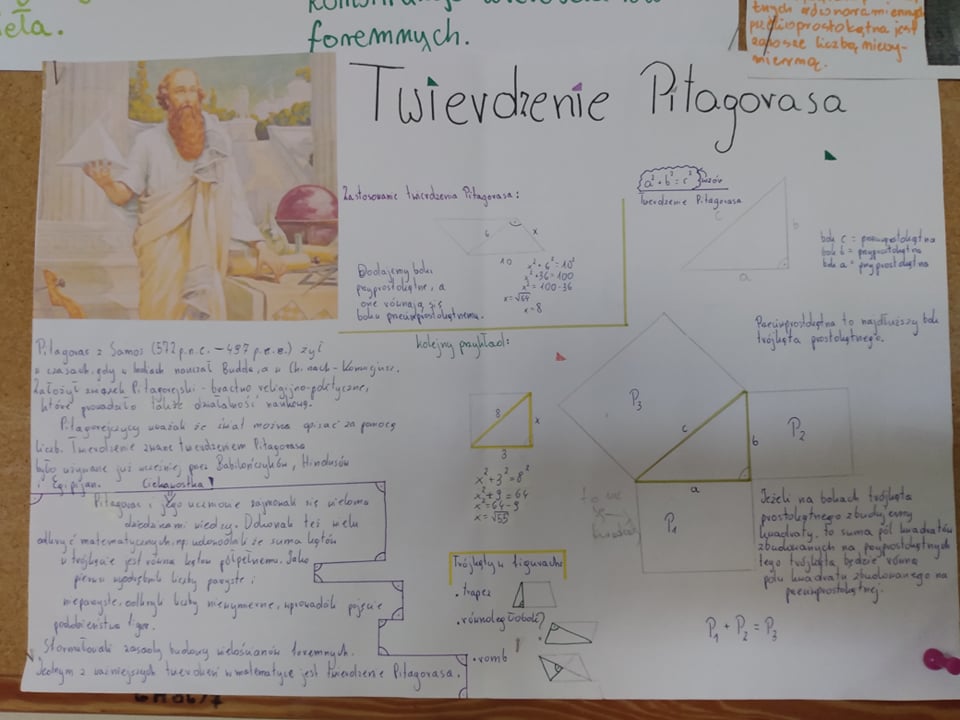 ieła.
foremnych.
tnych równoramiennych
przeciwprostokątna jest
zawsze liczbą niewy-
mierną.
Twierdzenie Pitagorasa
Zastosowanie twierdzenia Pitagorasa:
6
x
10
Dodajemy boki
przyprostokątne, a
one równają się
boku przeciwprostokątnemu.
x²+6²=10²
x²+36=100
x²=100-36
x=√64
x=8
a²+b²=c² wzór
Twierdzenie Pitagorasa
c
b
a
bok c = przeciwprostokątna
bok b = przyprostokątna
bok a = przyprostokątna
Przeciwprostokątna to najdłuższy bok
trójkąta prostokątnego.
Pitagoras z Samos (572 p.n.e. – 497 p.n.e.) żył
w czasach, gdy w Indiach nauczał Budda, a w Chinach - Konfucjusz.
Założył związek Pitagorejski - bractwo religijno-polityczne,
które prowadziło także działalność naukową.
Pitagorejczycy uważali że świat można opisać za pomocą
liczb. Twierdzenie zwane twierdzeniem Pitagorasa
było używane już wcześniej przez Babilończyków, Hindusów
i Egipcjan.
Ciekawostka
Pitagoras i jego uczniowie zajmowali się wieloma
dziedzinami wiedzy. Dokonali też wielu
odkryć matematycznych, np. udowodnili że suma kątów
w trójkącie jest równa kątowi półpełnemu. Jako
pierwsi wyodrębnili liczby parzyste i
nieparzyste, odkryli liczby niewymierne, wprowadzili pojęcie
podobieństwa figur.
Sformułowali zasady budowy wielościanów foremnych.
Jednym z ważniejszych twierdzeń w matematyce jest twierdzenie Pitagorasa.
kolejny przykład:
8
x
3
x²+3²=8²
x²+9=64
x²=64-9
x=√55
P₃
c
b
a
P₂
P₁
to są
kwadraty
Jeżeli na bokach trójkąta
prostokątnego zbudujemy
kwadraty, to suma pól kwadratów
zbudowanych na przyprostokątnych
tego trójkąta będzie równa
polu kwadratu zbudowanego na
przeciwprostokątnej.
P₁ + P₂ = P₃
Trójkąty w figurach:
• trapez
• równoległobok
• romb